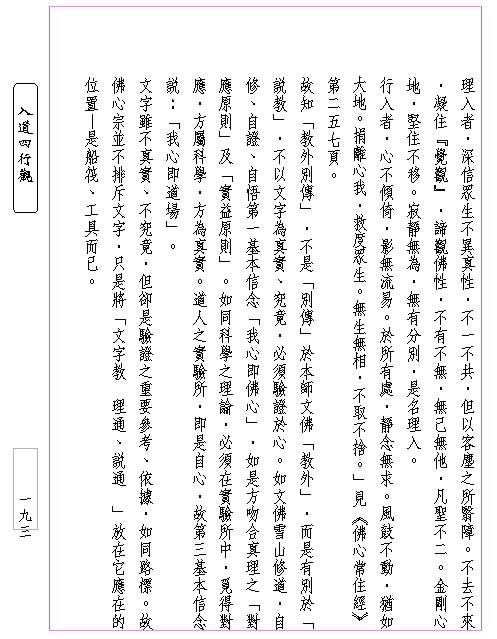 理入者，深信眾生不異真性，不一不共，但以客塵之所翳障。不去不來
，凝住『覺觀』，諦觀佛性，不有不無，無己無他，凡聖不二。金剛心
地，堅住不移。寂靜無為，無有分別，是名理入。
行入者，心不傾倚，影無流易。於所有處，靜念無求。風鼓不動，猶如
大地。捐離心我，救度眾生。無生無相，不取不捨。」見《佛心常住經》
第二五七頁。
故知「教外別傳」，不是「別傳」於本師文佛「教外」，而是有別於「
說教」，不以文字為真實、究竟，必須驗證於心。如文佛雪山修道，自
修、自證、自悟第一基本信念「我心即佛心」，如是方吻合真理之「對
應原則」及「實益原則」。如同科學之理論，必須在實驗所中，覓得對
應，方屬科學，方為真實。道人之實驗所，即是自心，故第三基本信念
說：「我心即道場」。
文字雖不真實、不究竟，但卻是驗證之重要參考、依據，如同路標。故
佛心宗並不排斥文字，只是將「文字教　理通、說通　」放在它應在的
位置—是船筏、工具而已。
入道四行觀
一九三